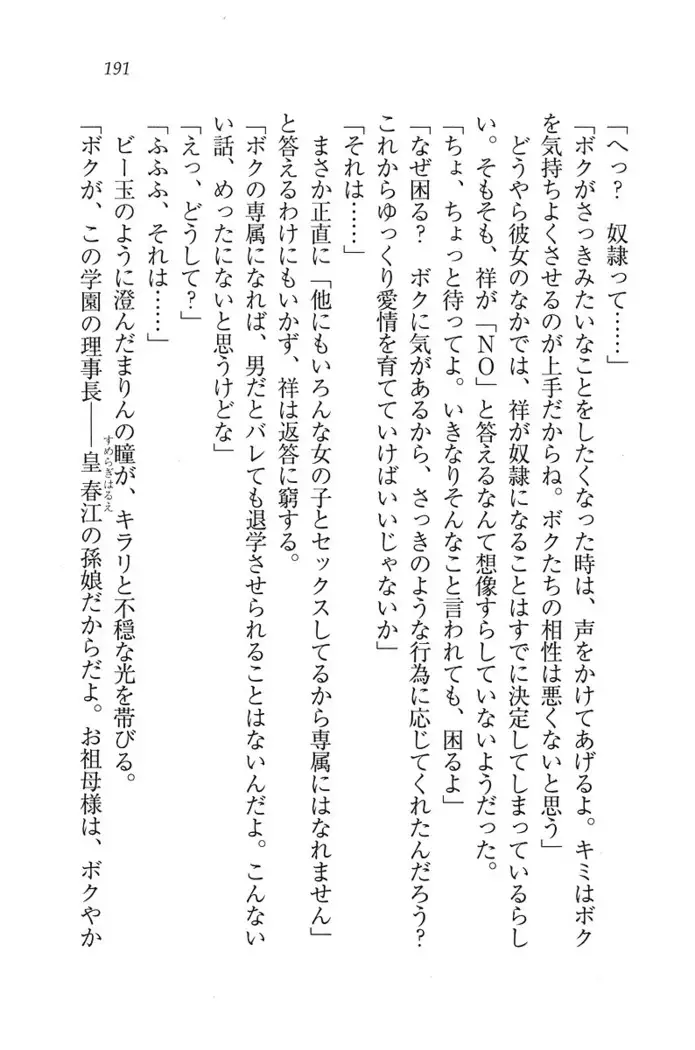 191
「へっ？　奴隷って……」
「ボクがさっきみたいなことをしたくなった時は、声をかけてあげるよ。キミはボク
を気持ちよくさせるのが上手だからね。ボクたちの相性は悪くないと思う」
どうやら彼女のなかでは、祥が奴隷になることはすでに決定してしまっているらし
い。そもそも、祥が「NO」と答えるなんて想像すらしていないようだった。
「ちょ、ちょっと待ってよ。いきなりそんなこと言われても、困るよ」
「なぜ困る？　ボクに気があるから、さっきのような行為に応じてくれたんだろう？
これからゆっくり愛情を育てていけばいいじゃないか」
「それは……」
まさか正直に「他にもいろんな女の子とセックスしてるから専属にはなれません」
と答えるわけにもいかず、祥は返答に窮する。
「ボクの専属になれば、男だとバレても退学させられることはないんだよ。こんない
い話、めったにないと思うけどな」
「えっ、どうして？」
「ふふふ、それは……」
ビー玉のように澄んだまりんの瞳が、キラリと不穏な光を帯びる。
すめらぎはるえ
「ボクが、この学園の理事長――皇春江の孫娘だからだよ。お祖母様は、ボクやか